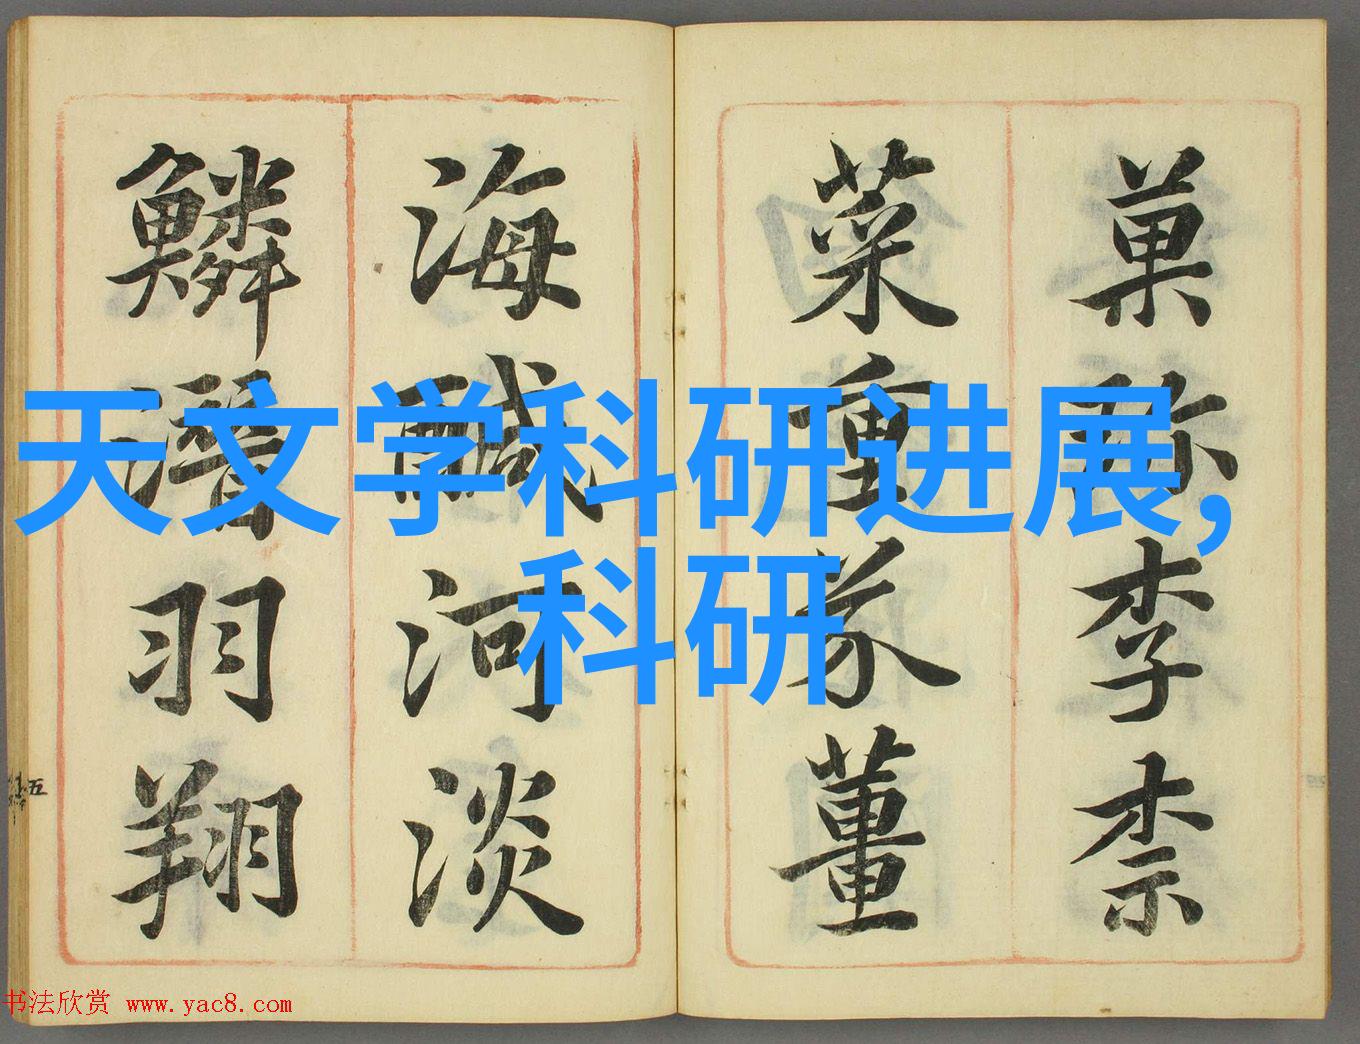 天文学科研进展,
科研
菓珎李柰
菜重芥薑
海醎河淡
鱗潛羽翔
五
书法欣赏 www.yac8.com